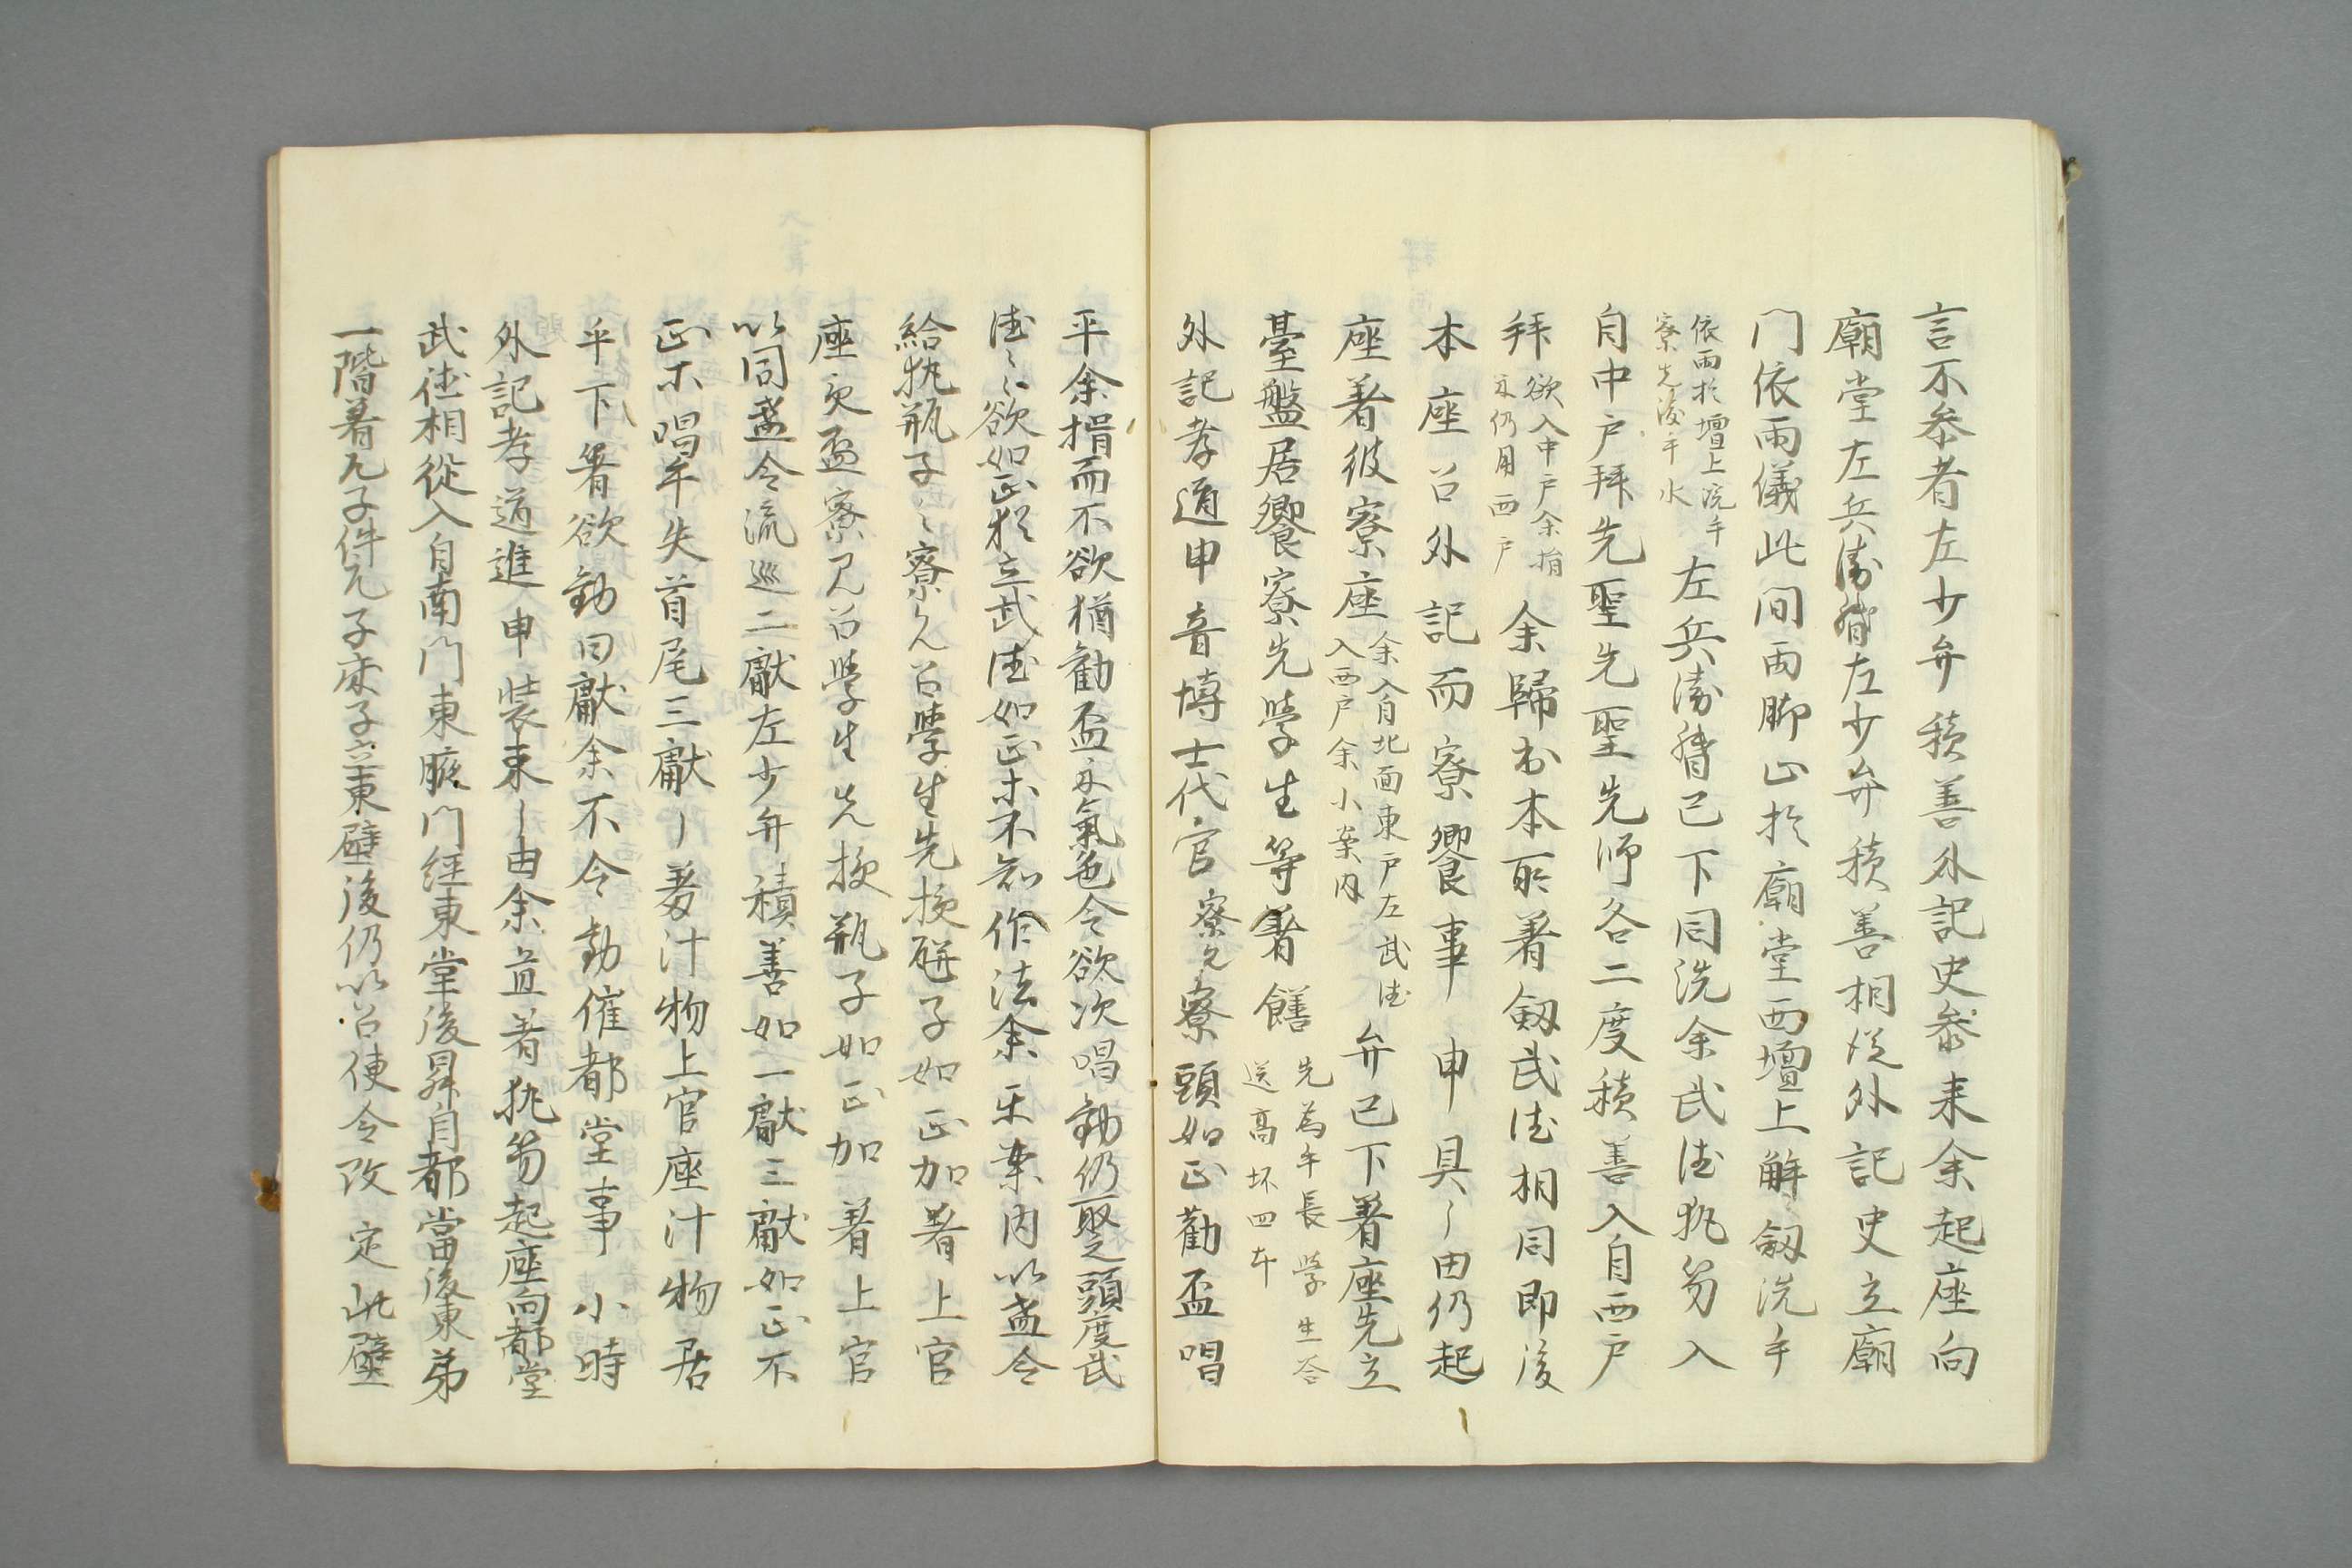 言不参者左少弁積善外記史参来余起座向
廟堂左兵衛督左少弁積善相従外記史立廟
門依雨儀此间雨脚止於廟堂西壇上解劔洗手
依雨於壇上洗手
寮先後手水
左兵衛督已下同洗余武徳執笏入
自中戸拜先聖先聖先师各二度積善入自西戸
拜
欲入中戸余揖
示仍用西戸
余歸出本所著劔武徳相同即復
本座召外記而寮饗事申具〻由仍起
座著彼寮座
余入自北面東戸左武徳
入西戸余小案内
弁已下著座先立
臺盤居饗寮先學生等着饍
先為午長學生荅
送高坏四本
外記孝道申音博士代官寮允寮頭如正勸盃唱
平余揖而不欲猶勧盃示氣色令欲次唱勧仍聖頭度武
徳〻欲如正於立武徳如正未不知作法余示案内以盞令
給執瓶子〻寮允召學生先授瓶子如正加着上官
座次盃寮允召學生先授瓶子如正加着上官
以同盞令流巡二獻左少弁積善如一獻三獻如正不
正未唱平失首尾三獻〻着汁物上官座汁物居
乎下箸欲勧四獻余不令勧催都堂事小時
外記孝道進申装束〻由余並着執笏起座向都堂
武徳相從入自南门東腋门經東堂後昇自都當後東弟
一階着兀子件兀子床子立東壁後仍以召使令改定此壁